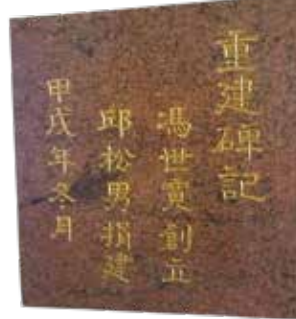 重建碑記
馮世寬創立
邱松男捐建
甲戌年冬月